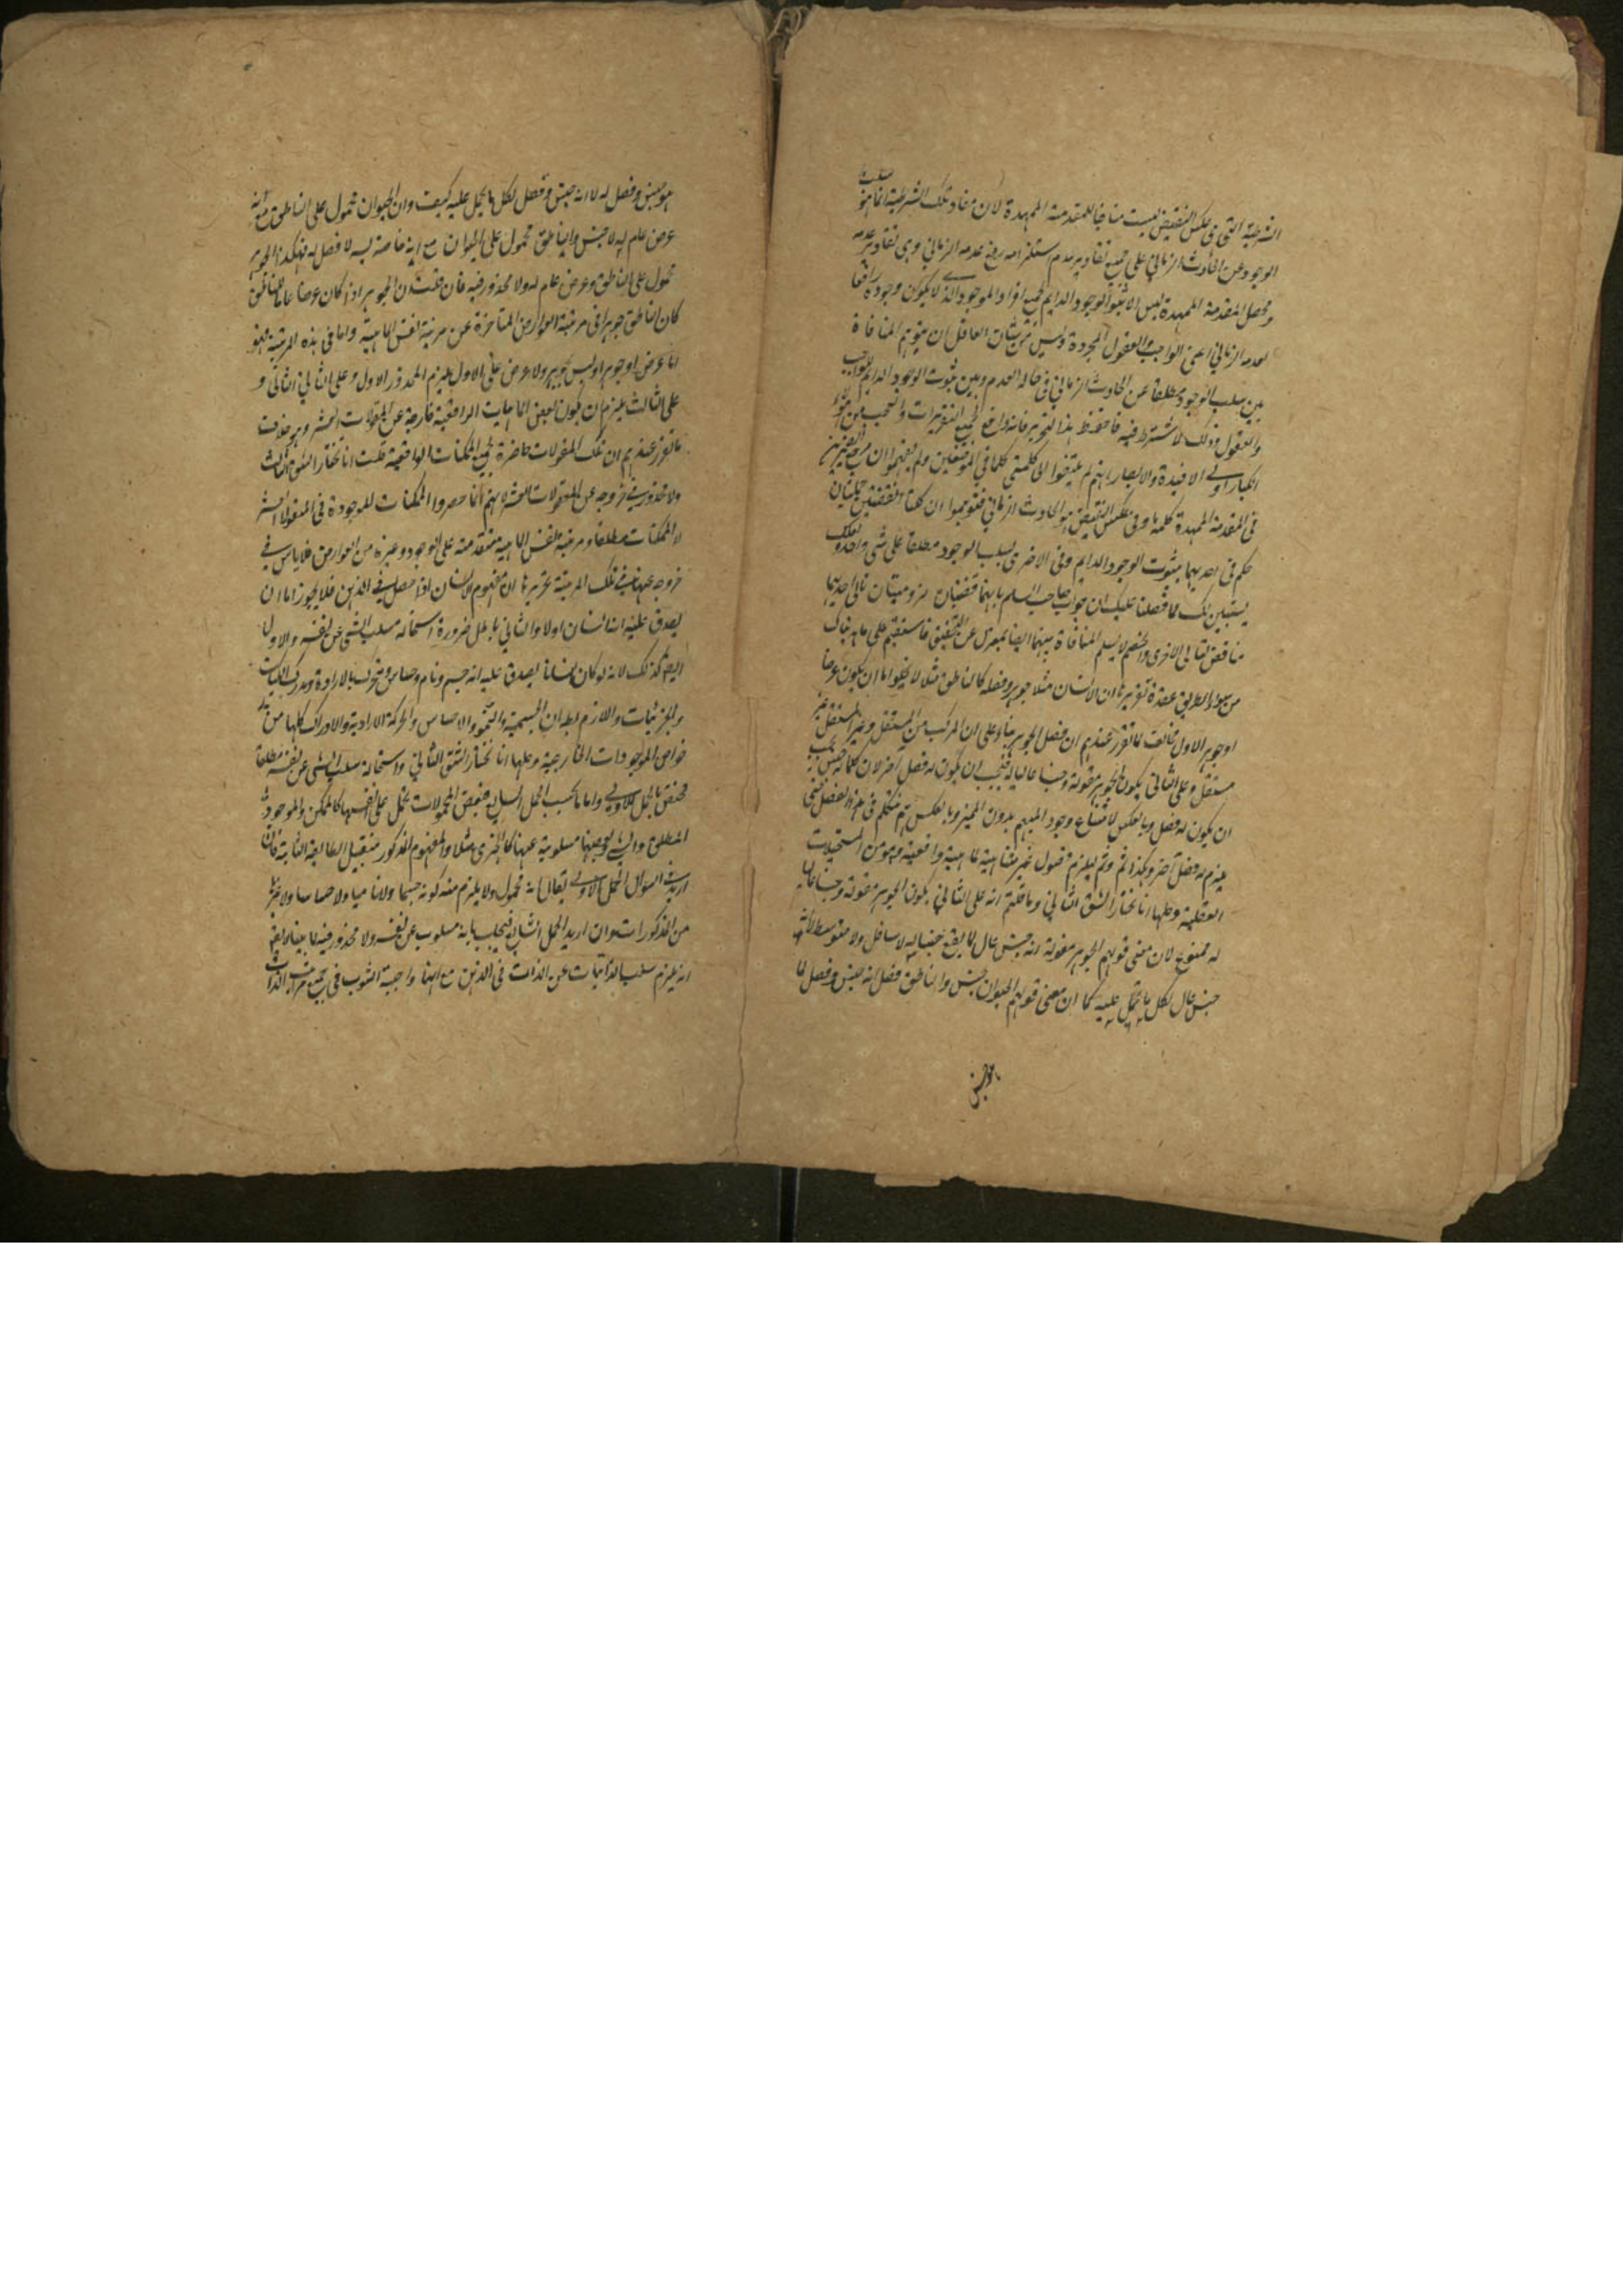 الشرطية التي هي عكس النقيض ليست منافيا للمقدمة الممهدة لان مفاد تلك الشرطية انما هو سلب
الوجود عن الحادث الزماني على جميع تقادير عدم استلزامه رفع عدمه الزماني وهي تقادير عدمه
ومحصل المقدمة الممهدة ليس الا ثبوت الوجود الدايم لجميع افراد الموجود الذي لا يكون وجوده رافعا
لعدمه الزماني اعني الواجب والعقول المجردة وليس من شان العاقل ان يتوهم المنافاة
بين سلب الوجود مطلقا عن الحادث الزماني في حالة العدم وبين ثبوت الوجود الدايم للواجب
والعقول وذلك لا شترط فيه فاحفظ هذا التحرير فانه دافع لجميع التقريرات والتعجب من هؤلاء
الكبار اولي الافيدة والابصار انهم لم يلتفتوا الى كلمتي كلما في الموضعين ولم يفهموا ان مرجع الضميرين
في المقدمة الممهدة كلمة ما وفي عكس النقيض هو الحادث الزماني فتوهموا ان كلتا المتفقتين حمليتان
حكم في احديهما بثبوت الوجود الدايم وفي الاخرى بسلب الوجود مطلقا على شي واحد ولعلك
يستبين لك مما فصلنا عليك ان جواب صاحب السلم بانهما قضيتان لزوميتان تالي احديهما
مناقض لتالي الاخرى والخصم لا يسلم المنافاة بينهما ايضا بمعزل عن التحقيق فاستقم على ما هديناك
من سواء الطريق عقدة تقريرها ان الانسان مثلا جوهر وفصله كالناطق مثلا لا يخلو اما ان يكون عرضا
او جوهرا الاول مخالف لما تقرر عندهم ان فصل الجوهر جوهر بناء على ان المركب من المستقل وغير المستقل غير
مستقل وعلى الثاني يكون الجوهر مقولة وجنسا عاليا له فيجب ان يكون له فصل آخر لان كلما له جنس يجب
ان يكون له فصل وبالعكس لامتناع وجود المبهم بدون المميز وبالعكس ثم نتكلم في هذا الفصل حتى
يلزم له فصل آخر وهكذا ثم وثم فيلزم فصول غير متناهية لماهية واقعية وهو من المستحيلات
العقلية وحلها انا نختار الشق الثاني وما قلتم انه على الثاني يكون الجوهر مقولة وجنسا عاليا
له ممنوع لان معنى قولهم الجوهر مقولة انه جنس عال لما يقع جنسا له لا سافل ولا متوسط لا انه
جنس عال لكل ما يحمل عليه كما ان معنى قولهم الحيوان جنس والناطق فصل انه جنس وفصل لما
هو جنس وفصل له لا انه جنس وفصل لكل ما يحمل عليه كيف وان الحيوان محمول على الناطق مع انه
عرض عام له لا جنس والناطق محمول على الحيوان مع انه خاصة له لا فصل له فهكذا الجوهر
محمول على الناطق وعرض عام له ولا محذور فيه فان قلت ان الجوهر اذا كان عرضا عاما للناطق
كان الناطق جوهرا في مرتبة العوارض المتاخرة عن مرتبة نفس الماهية واما في هذه المرتبة فهو
اما عرض او جوهر او ليس بجوهر ولا عرض على الاول يلزم المحذور الاول وعلى الثاني الثاني و
على الثالث يلزم ان يكون بعض الماهيات الواقعية خارجة عن المقولات العشر وهو خلاف
ما تقرر عندهم ان تلك المقولات حاضرة لجميع الممكنات الواقعية قلت انا نختار الشق الثالث
ولا محذور في خروجه عن المقولات العشر لانهم انما حصروا الممكنات الموجودة في المقولات العشر
لا الممكنات مطلقا ومرتبة نفس الماهية متقدمة على الوجود وغيره من العوارض فلا باس في
خروجه عنها في تلك المرتبة تحريرها ان مفهوم الانسان اذا حصل في الذهن فلا يخلو اما ان
يصدق عليه انه انسان اولا والثاني باطل ضرورة استحالة سلب الشي عن نفسه والاول
ايضا كذلك لانه لو كان انسانا يصدق عليه انه جسم ونام وحساس ومتحرك بالارادة ومدرك الكليات
والجزئيات واللازم بط لان الجسمية والنمو والاحساس والحركة الارادية والادراك كلها من
خواص الموجودات الخارجية وحلها انا نختار الشق الثاني واستحالة سلب الشي عن نفسه مطلقا
مختص بالحمل الاولي واما بحسب الحمل الشايع فبعض المحمولات يحمل على انفسها كالممكن والموجود
المطلق والشي وبعضها مسلوبة عنها كالجزئي مثلا والمفهوم المذكور من قبيل الطايفة الثانية فان
اريد في السؤال الحمل الاولي يقال انه محمول ولا يلزم منه كونه جسما ولا ناميا ولا حساسا ولا غيرها
من المذكورات وان اريد الحمل الشايع فيجاب بانه مسلوب عن نفسه ولا محذور فيه
انه يلزم سلب الذاتيات عن الذات في الذهن مع انها واجبة الثبوت في جميع مراتب الذات